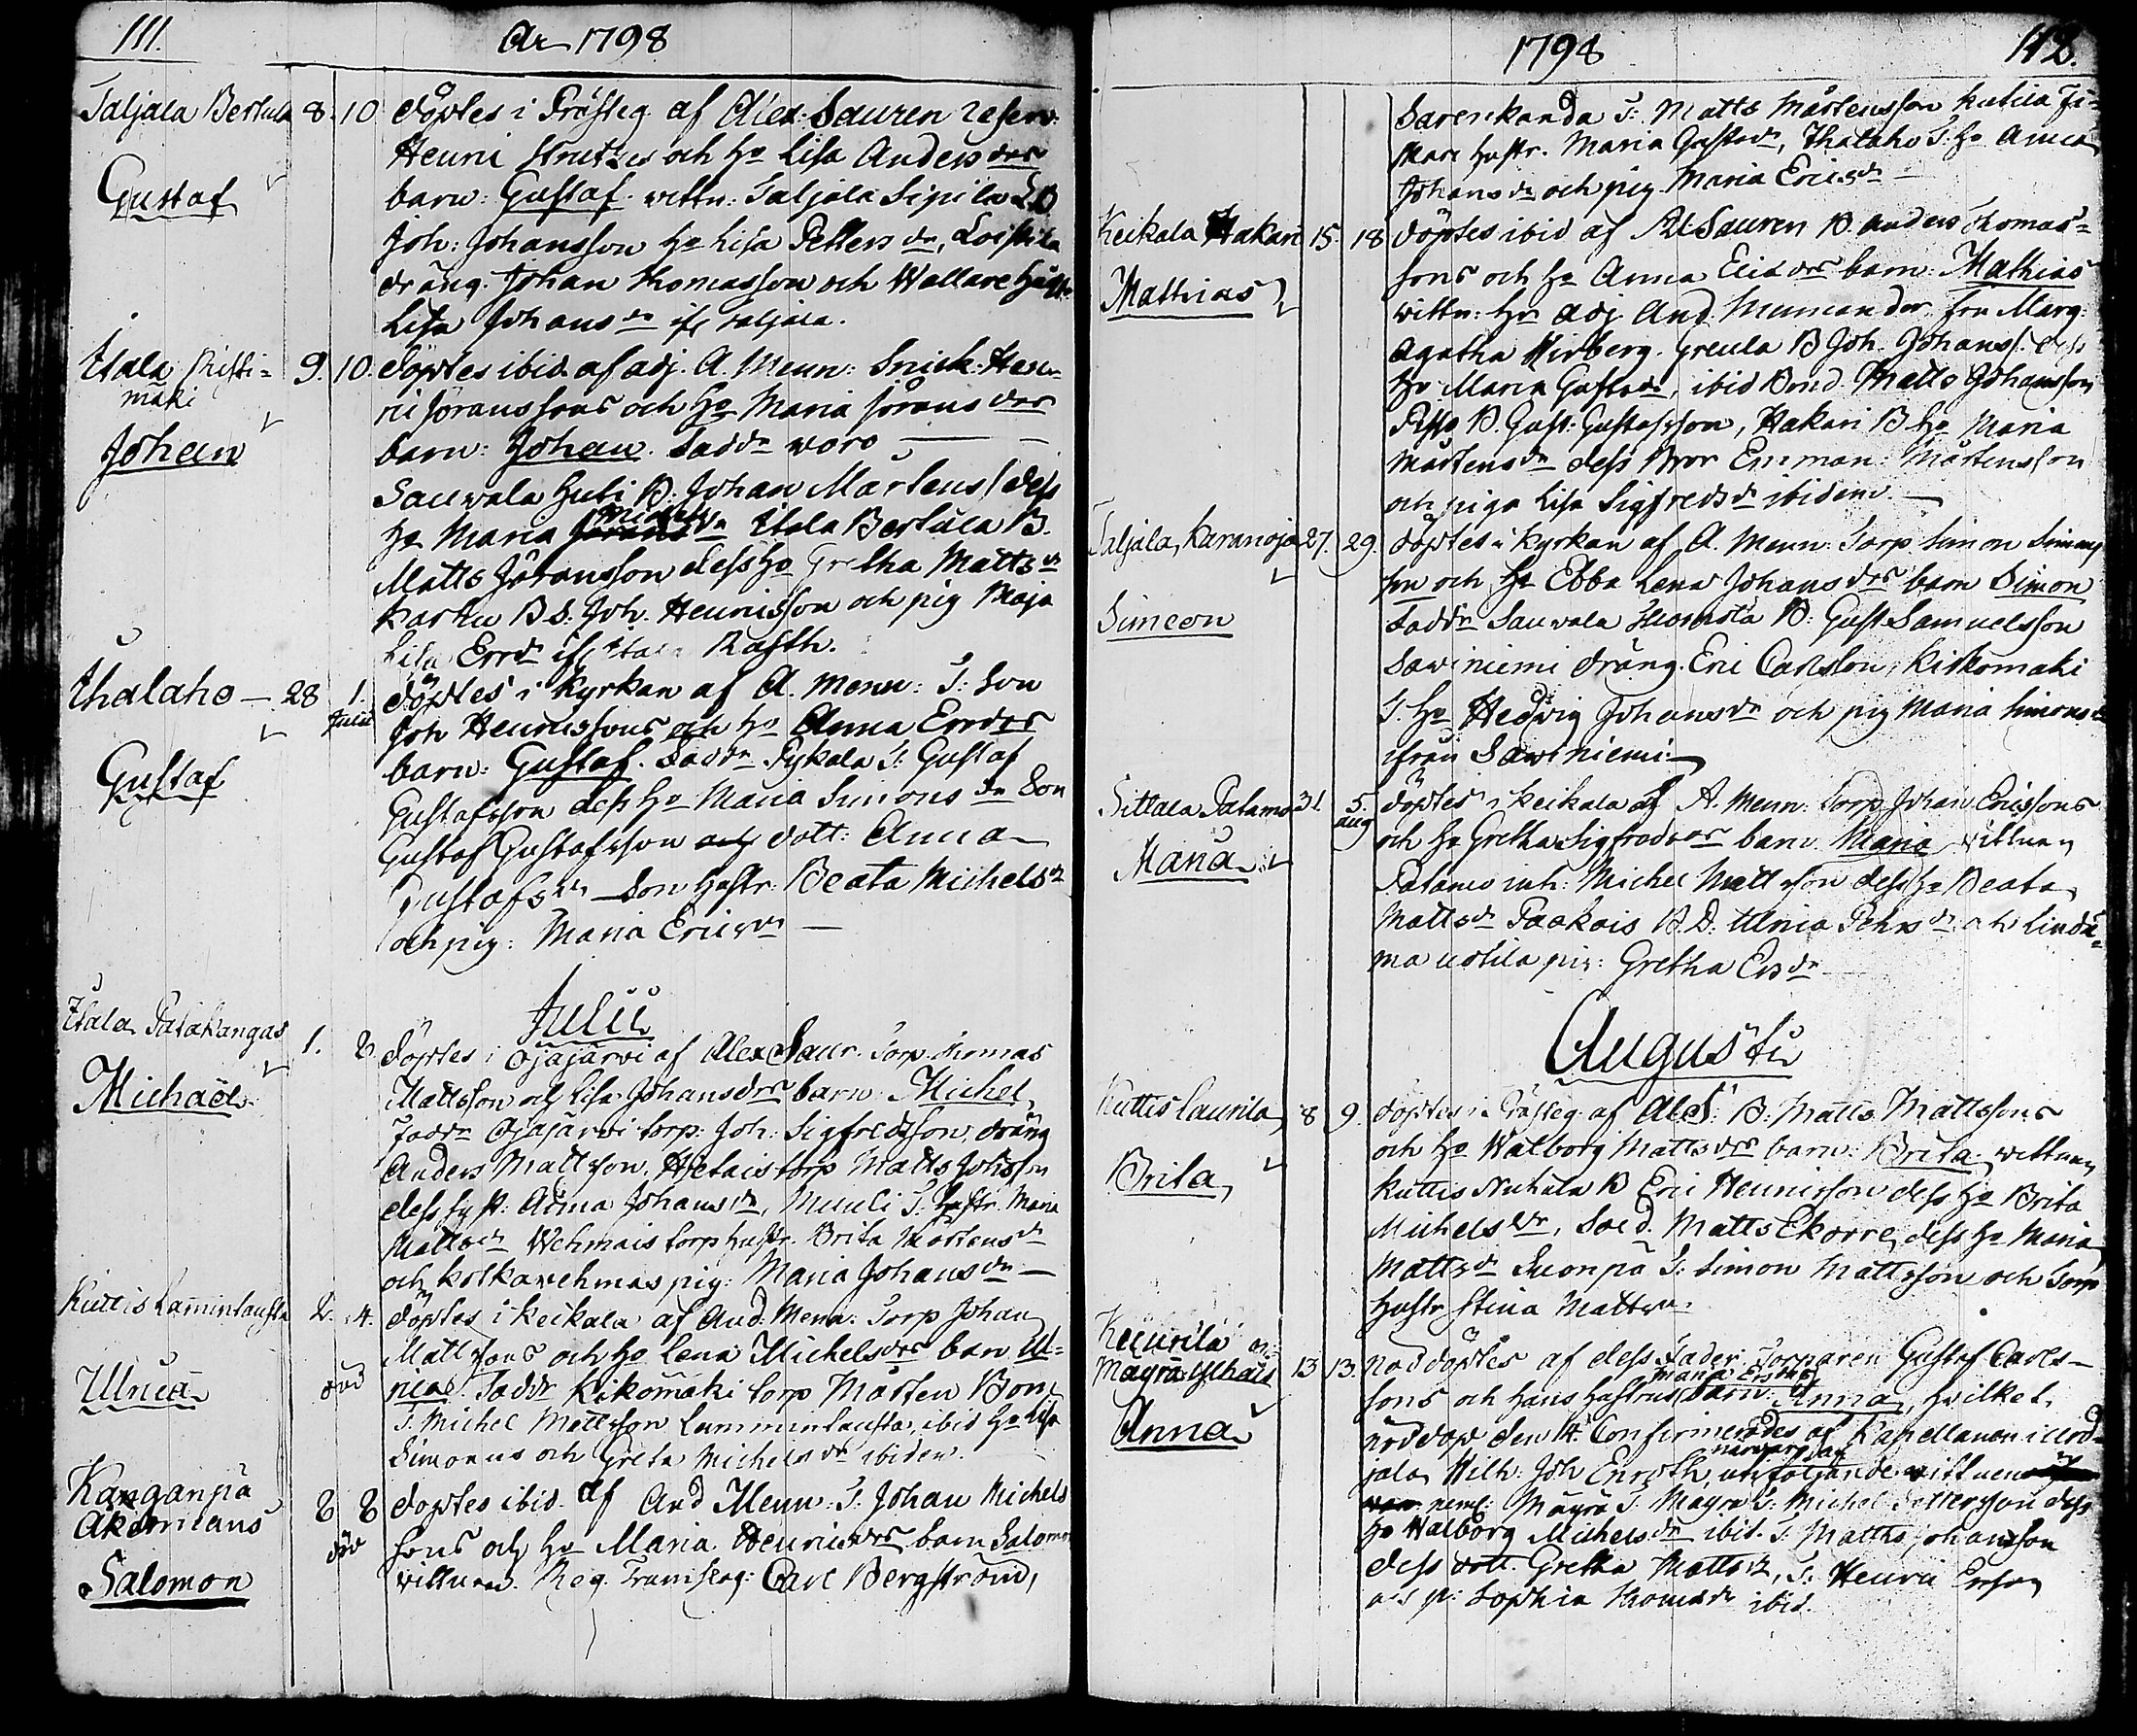 111.
År 1798
Taljala Bertula 8. 10 döptes i Prästeg. af Alex: Sauren reserv:
Henric Strutzes och H° Lisa Anders drs
Gustaf
barn: Gustaf. vittn: Taljala Sipila B
Joh: Johansson H° Lisa Petters dr, Loistila
dräng. Johan Thomasson och Wallare Hustr.
Lisa Johans dr ifr Taljala.
Itala Risti= 9. 10. döptes ibid. af adj. A. Menn: Snick: Hen=
mäki
ric Joranssons och H° Maria Jorans drs
Johan
barn: Johan. Fadd.r woro
Sauwala Huti B. Johan Mårtens/ dess
H° Maria Michels dr Itala Bertula B.
Matts Joransson dess H° Gretha Matts dr
Karhu B S. Joh. Henricsson och pig Maja
Lisa Ersd.r ifr Itala Rusth.
Uhalaho — 28 1. döptes i Kyrkan af A. Menn: T: Son
Julii
Joh Henricssons och H° Anna Ersdrs
Gustaf
barn: Gustaf. Fadd.r Pykala T: Gustaf
Gustafsson dess H° Maria Simons dr Son
Gustaf Gustafsson och dott: Anna
Gustafs dr Son Hustr. Beata Michels dr
och pig: Maria Ericsdr
Julii
Itala Patakangas 1. 8. döptes i Ojajärvi af Alex Saur. Torp. Thomas
Michaël
Mattsson och Lisa Johansdrs barn: Michel
Fadd.r Ojajärvi torp: Joh: Sigfredsson, dräng
Anders Mattsson, Hietais torp Matts Johsson
dess syst: Anna Johans dr, Muuli T. Hustr. Maria
Matts dr Wehmais torp hustr. Brita Mårtens dr
och Kolkawehmas pig: Maria Johans dr
Kuttis Lamintausta 2. 4. döptes i Keikala af And. Menn: Torp Johan
Mattssons och H° Lena Michelsdrs barn Ul=
Ulrica död
rica. Fadd.r Kikomäki torp Mårten Bom
T. Michel Mattsson Lammintausta, ibid H° Lisa
Simons och Greta Michels dr ibidem.
Kanganpä
Akermans 8 8 döptes ibid. af And Menn: T. Johan Michels
död
sons och H° Maria Henricsdrs barn Salomon
Salomon
vittnen. Reg. Trumslag: Carl Bergström,
1798
112.
Sarenkanda T: Matts Mårtensson Kutila Ti=
mars hustr. Maria Gustafdr, Uhalaho T. H° Anna
Johans dr och pig. Maria Ericsdr
Keikala Hakari 15. 18 döptes ibid af Al Sauren B. Anders Thomas=
sons och H° Anna Ericdrs barn: Mathias
Mathias
vittn: Hr Adj And. Mennander, fru Marg:
Agatha Wirberg. Greula B Joh. Johans/ dess
H° Maria Gustafsdr, ibid Bond. Matts Johansson
B. Gust: Gustafsson, Hakari B. H° Maria
Mårtens dr dess Bror Emman: Mårtensson
och piga Lisa Sigfredsdr ibidem.
Taljala, Karanoja 27. 29. döptes i Kyrkan af A. Menn: Torp Simon Simons
son och H° Ebba Lena Johansdrs barn Simon
Simeon
Fadd.r Sauwala Huomola B. Gust Samuelsson
Sawiniemi dräng. Eric Carlsson, Kirkomaki
T. H° Hedwig Johansdr och pig Maria Simonsdr
ifrån Sawiniemi
Sittala Patamo 31. 5. döptes i Keikala af A. Menn: Torp Johan Ericssons
aug
och H° Gretha Sigfredsdrs barn: Maria vittnen
Maria
Patamo inh: Michel Mattsson dess H° Beata
Mattsdr Paakois B. D: Ulrica Pehrs dr och Linda=
ma ustila pig: Gretha Ersdr
Augusti
Kuttis Laurila 8 9. döptes i Prästeg. af Al S: B. Matts Mattssons
och H° Walborg Mattsdrs barn: Brita. vittnen
Brita
Kuttis Nuhala B Eric Henricsson dess H° Brita
Michelsdr, Sold. Matts Ekorre, dess H° Maria
Mattsdr Suonpä T: Simon Mattsson och Torp
Hustr Stina Mattsdr.
Keurila
Mayrä 13 13. nöddöptes af dess Fader Torparen Gustaf Carls=
Maria Ersdrs
sons och hans Hustrus barn: Anna, hvilket
Anna
nöddop den 14. Confirmerades af Kapellanen i Urd=
närvaro af
jala Wilh: Joh Enroth, uti följande vittnens
neml: Mayrä T. Mayra T: Michel Pettersson dess
H° Walborg Michelsdr ibid. T. Matths Johansson
dess dott. Gretha Mattsdr, T: Henric Ersson
och pi: Sophia Thomsdr ibid.